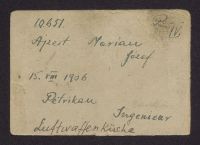 10651
Ajzert Marian
Józef
15. VIII 1906
Petrikau
Ingenieur
Luftwaffenküche